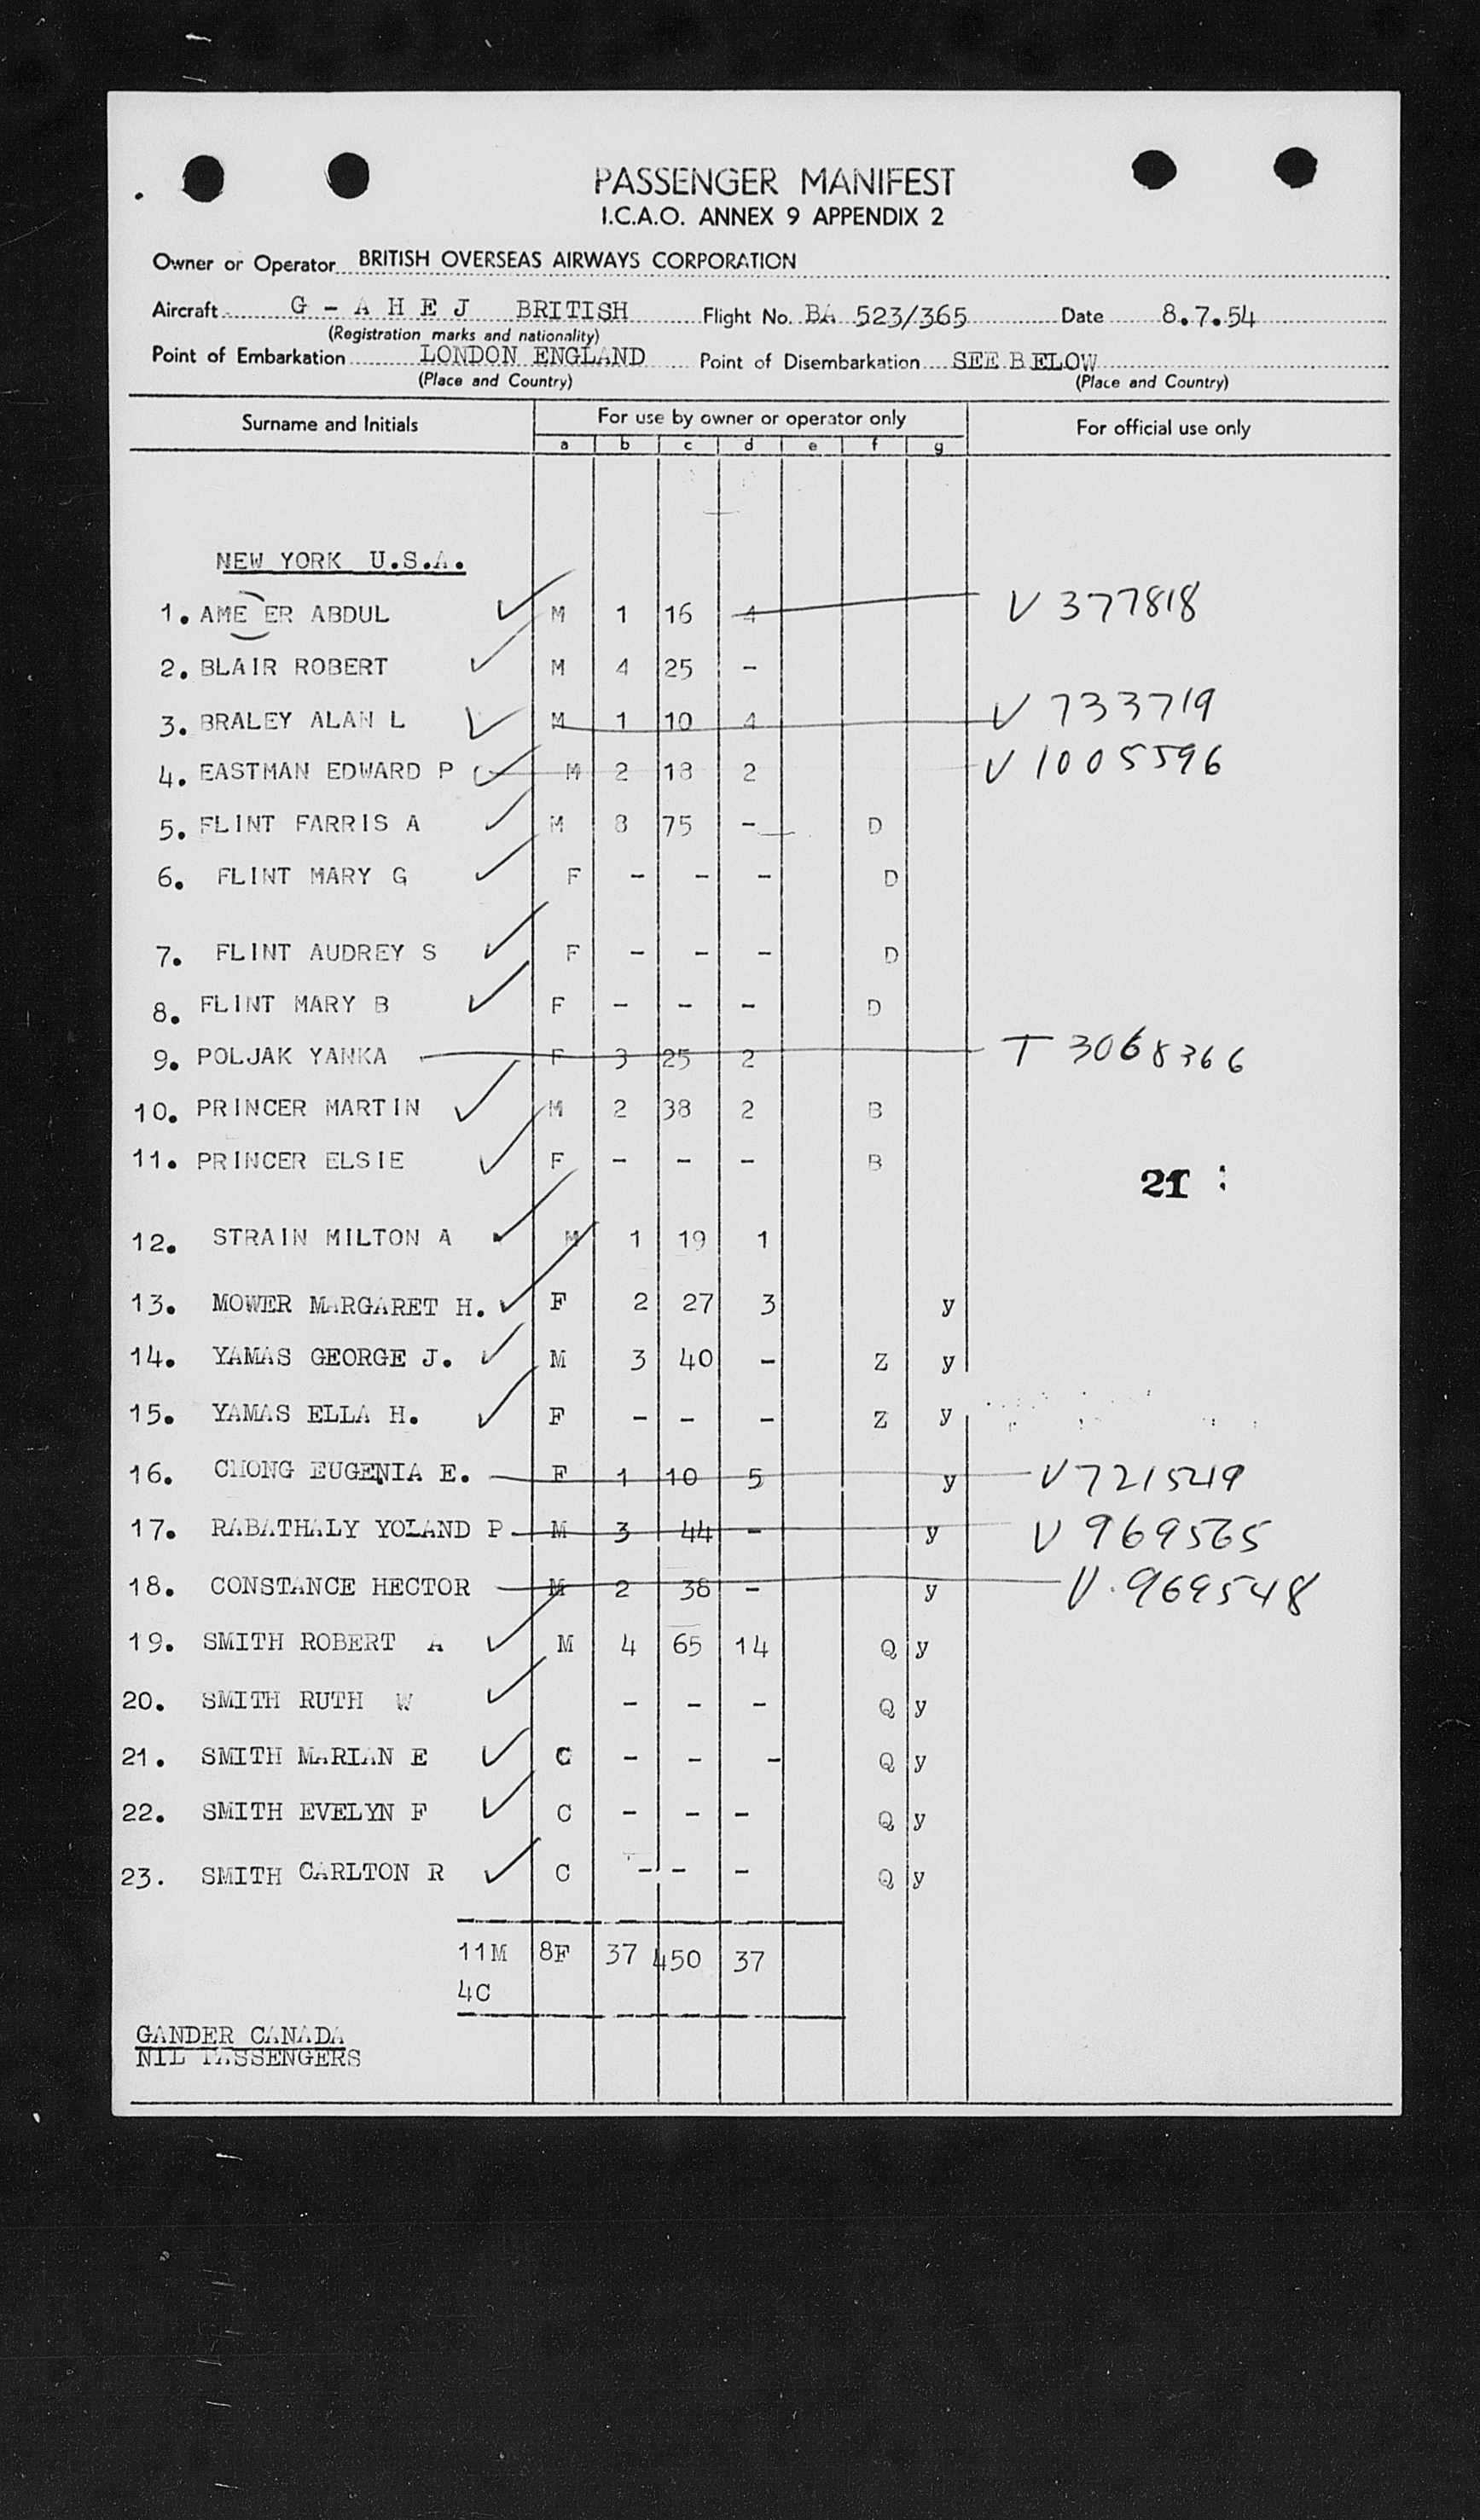 PASSENGER MANIFEST
I.C.A.O. ANNEX 9 APPENDIX 2
Owner or Operator BRITISH OVERSEAS AIRWAYS CORPORATION
Aircraft G - A H E J BRITISH Flight No. BA 523/365 Date 8.7.54
(Registration marks and nationality)
Point of Embarkation LONDON ENGLAND Point of Disembarkation SEE BELOW
(Place and Country) (Place and Country)
Surname and Initials For use by owner or operator only For official use only
a b c d e f g
NEW YORK U.S.A.
1. AME ER ABDUL M 1 16 4 V 377818
2. BLAIR ROBERT M 4 25 -
3. BRALEY ALAN L M 1 10 4 V 733719
4. EASTMAN EDWARD P M 2 18 2 V 1005596
5. FLINT FARRIS A M 8 75 - D
6. FLINT MARY G F - - - D
7. FLINT AUDREY S F - - - D
8. FLINT MARY B F - - - D
9. POLJAK YANKA F 3 25 2 T 3068366
10. PRINCER MARTIN M 2 38 2 B
11. PRINCER ELSIE F - - - B
21
12. STRAIN MILTON A M 1 19 1
13. MOWER MARGARET H. F 2 27 3 y
14. YAMAS GEORGE J. M 3 40 - Z y
15. YAMAS ELLA H. F - - - Z y
16. CHONG EUGENIA E. F 1 10 5 y V 721549
17. RABATHALY YOLAND P M 3 44 - y V 969565
18. CONSTANCE HECTOR M 2 38 - y V. 969548
19. SMITH ROBERT A M 4 65 14 Q y
20. SMITH RUTH W - - - Q y
21. SMITH MARIAN E C - - - Q y
22. SMITH EVELYN F C - - - Q y
23. SMITH CARLTON R C - - - Q y
11M 8F 37 450 37
4C
GANDER CANADA
NIL PASSENGERS